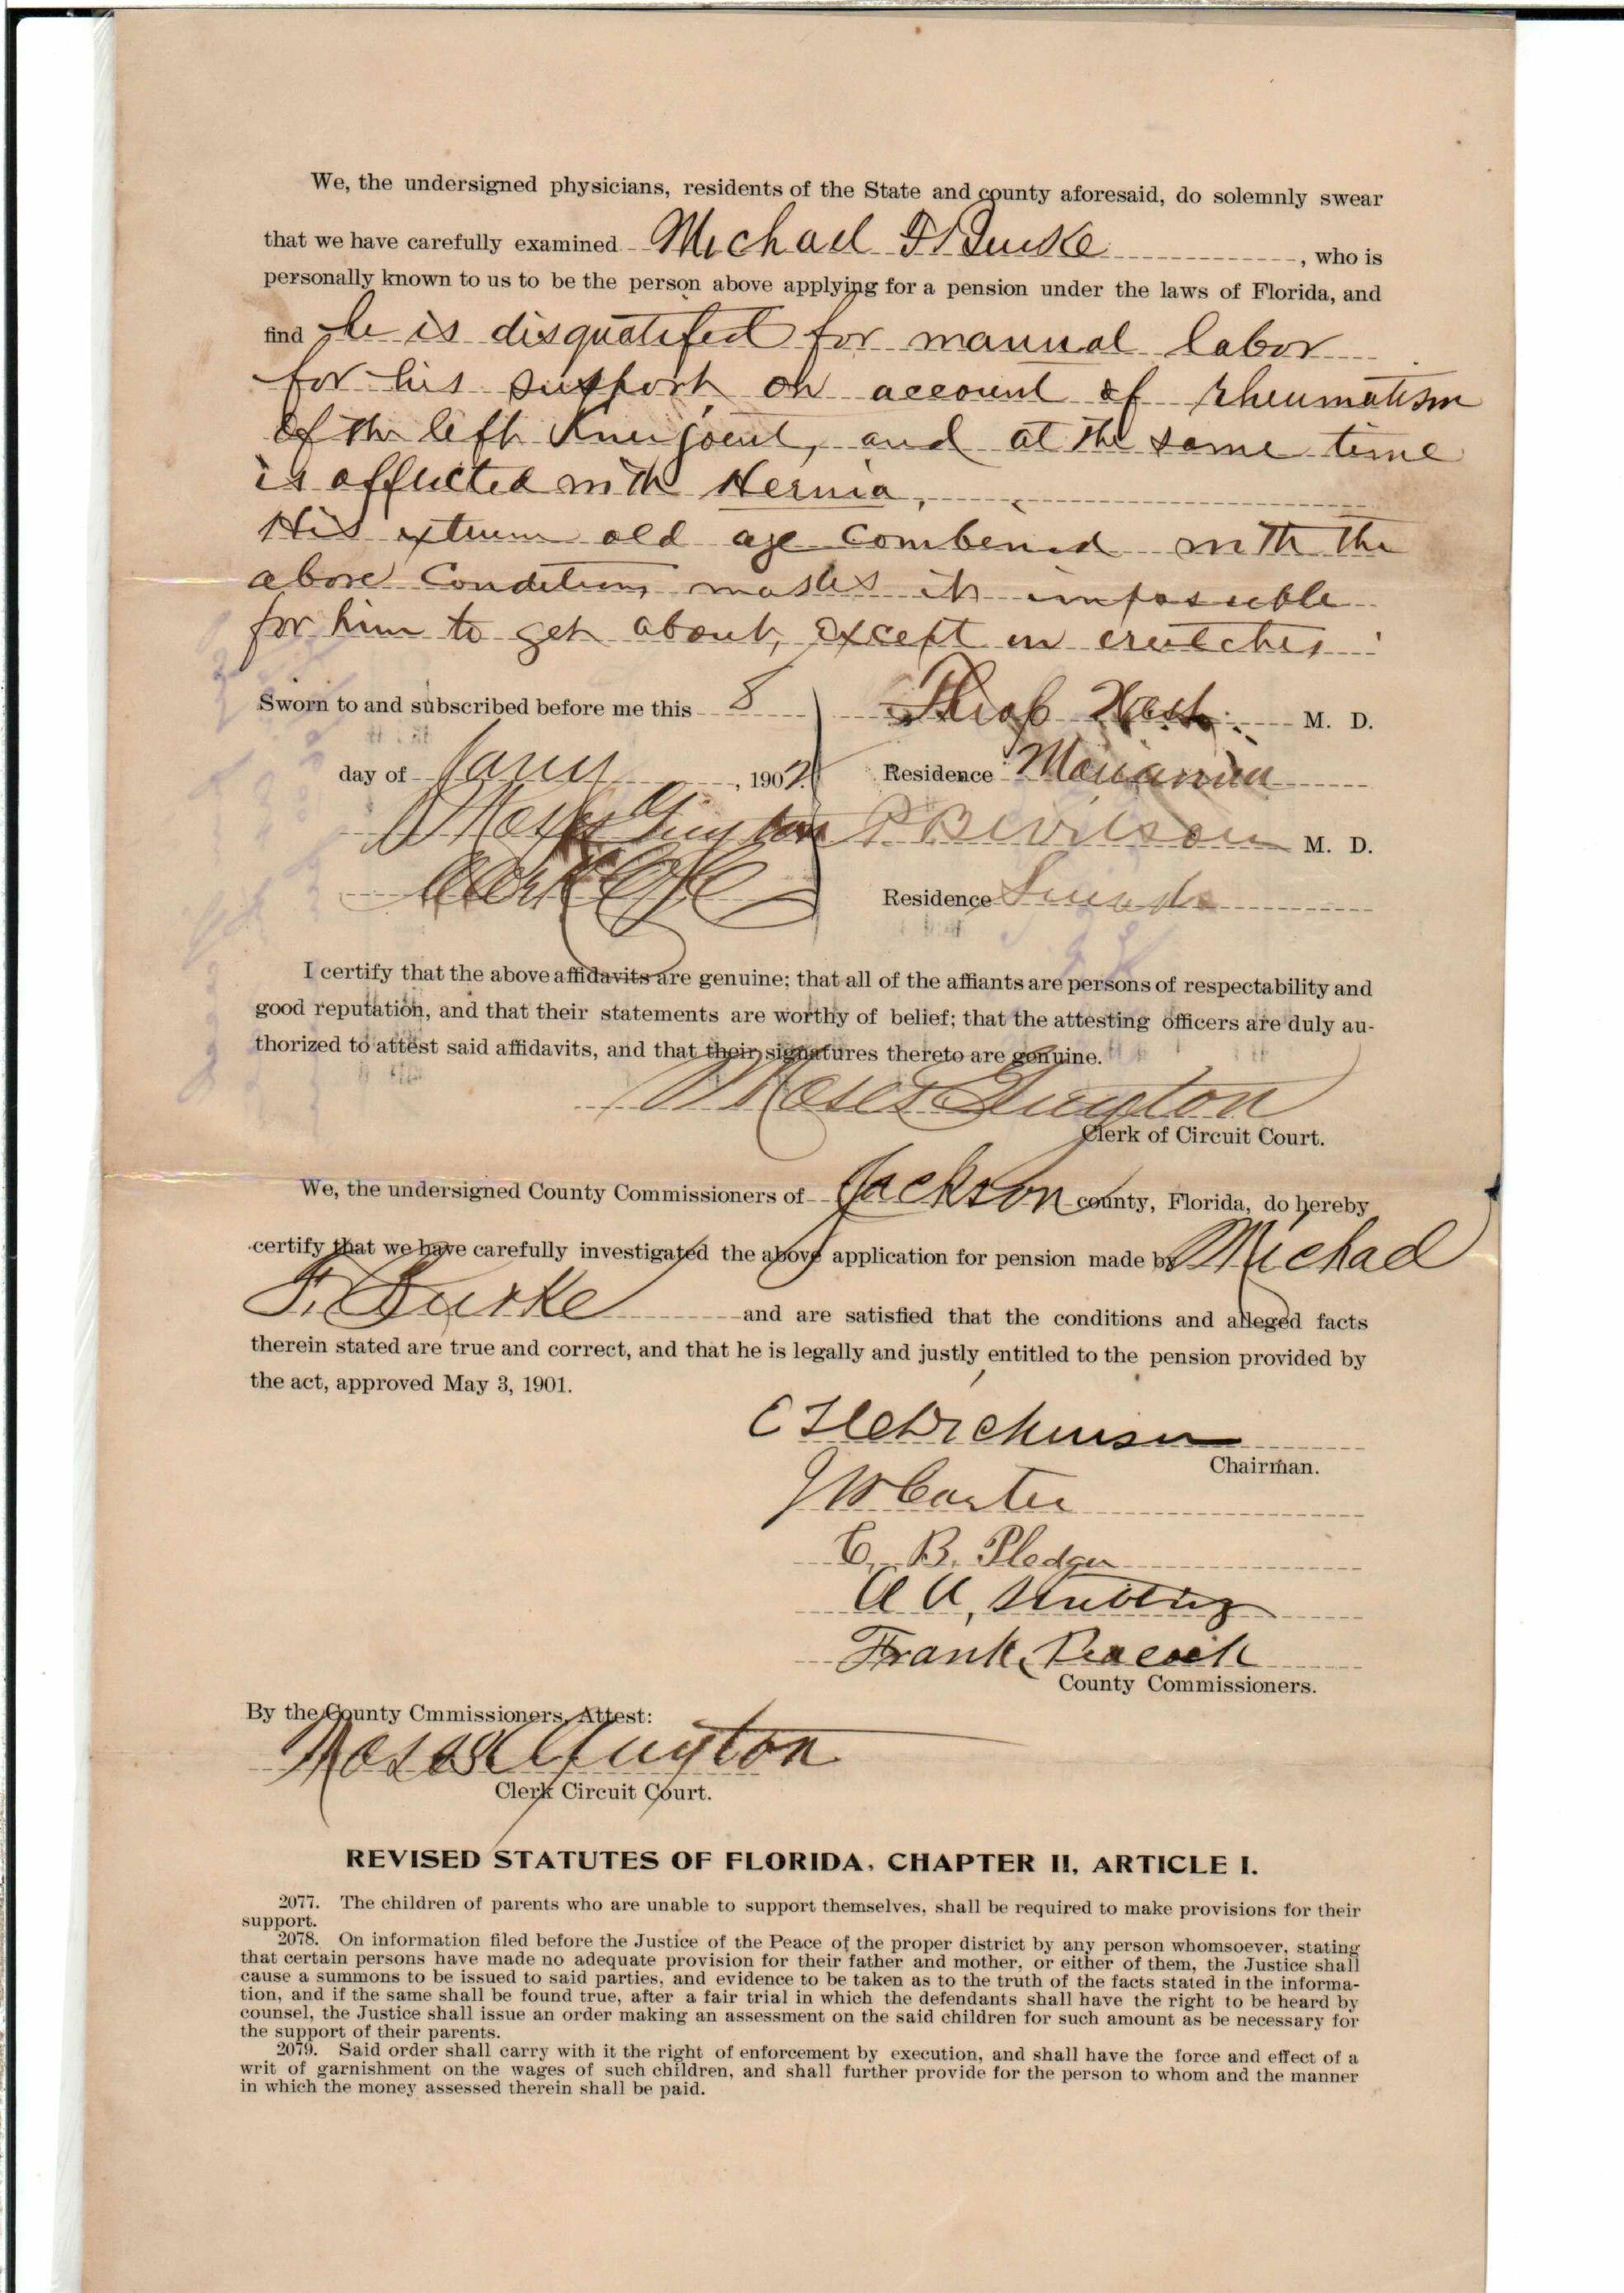 We, the undersigned physicians, residents of the State and county aforesaid, do solemnly swear
that we have carefully examined Michael F Burke, who is
personally known to us to be the person above applying for a pension under the laws of Florida, and
find he is disqualified for manual labor
for his support on account of rheumatism
of the left Knee joint, and at the same time
is afflicted with Hernia,
His extreme old age combined with the
above Conditions makes it impossible
for him to get about, except on crutches.
Sworn to and subscribed before me this 8
M. D.
day of Jany, 1902.
Residence Marianna
Moses Guyton
P B Wilson M. D.
Clerk C C
Residence Sneads
I certify that the above affidavits are genuine; that all of the affiants are persons of respectability and
good reputation, and that their statements are worthy of belief; that the attesting officers are duly au-
thorized to attest said affidavits, and that their signatures thereto are genuine.
Moses Guyton
Clerk of Circuit Court.
We, the undersigned County Commissioners of Jackson county, Florida, do hereby
certify that we have carefully investigated the above application for pension made by Michael
F. Burke and are satisfied that the conditions and alleged facts
therein stated are true and correct, and that he is legally and justly entitled to the pension provided by
the act, approved May 3, 1901.
Chairman.
J W Carter
C. B. Pledger
A A,
Frank Peacock
County Commissioners.
By the County Cmmissioners, Attest:
Moses Guyton
Clerk Circuit Court.
REVISED STATUTES OF FLORIDA, CHAPTER II, ARTICLE I.
2077. The children of parents who are unable to support themselves, shall be required to make provisions for their
support.
2078. On information filed before the Justice of the Peace of the proper district by any person whomsoever, stating
that certain persons have made no adequate provision for their father and mother, or either of them, the Justice shall
cause a summons to be issued to said parties, and evidence to be taken as to the truth of the facts stated in the informa-
tion, and if the same shall be found true, after a fair trial in which the defendants shall have the right to be heard by
counsel, the Justice shall issue an order making an assessment on the said children for such amount as be necessary for
the support of their parents.
2079. Said order shall carry with it the right of enforcement by execution, and shall have the force and effect of a
writ of garnishment on the wages of such children, and shall further provide for the person to whom and the manner
in which the money assessed therein shall be paid.